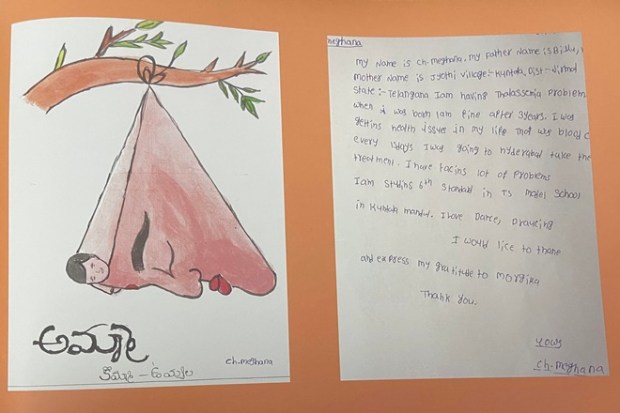 అమ్మ
కొమ్మ - ఉయ్యాల
ch.meghana
meghana
my Name is ch.meghana, my father Name is Billu,
mother Name is Jyothi village:- kuntala, Dist - Nirmal
state:- Telangana Iam having Thalassemia problem
when i was born Iam fine after 3years. I was
getting health issues in my life that was blood c
every 15days I was going to hyderabad take the
treatment. I have facing lot of problems
Iam studing 6th standard in TS model School
in Kuntala mandal. I love Dance, Drawing
I would like to thank
and express my gratitude to
Thank you.
yours
ch.meghana